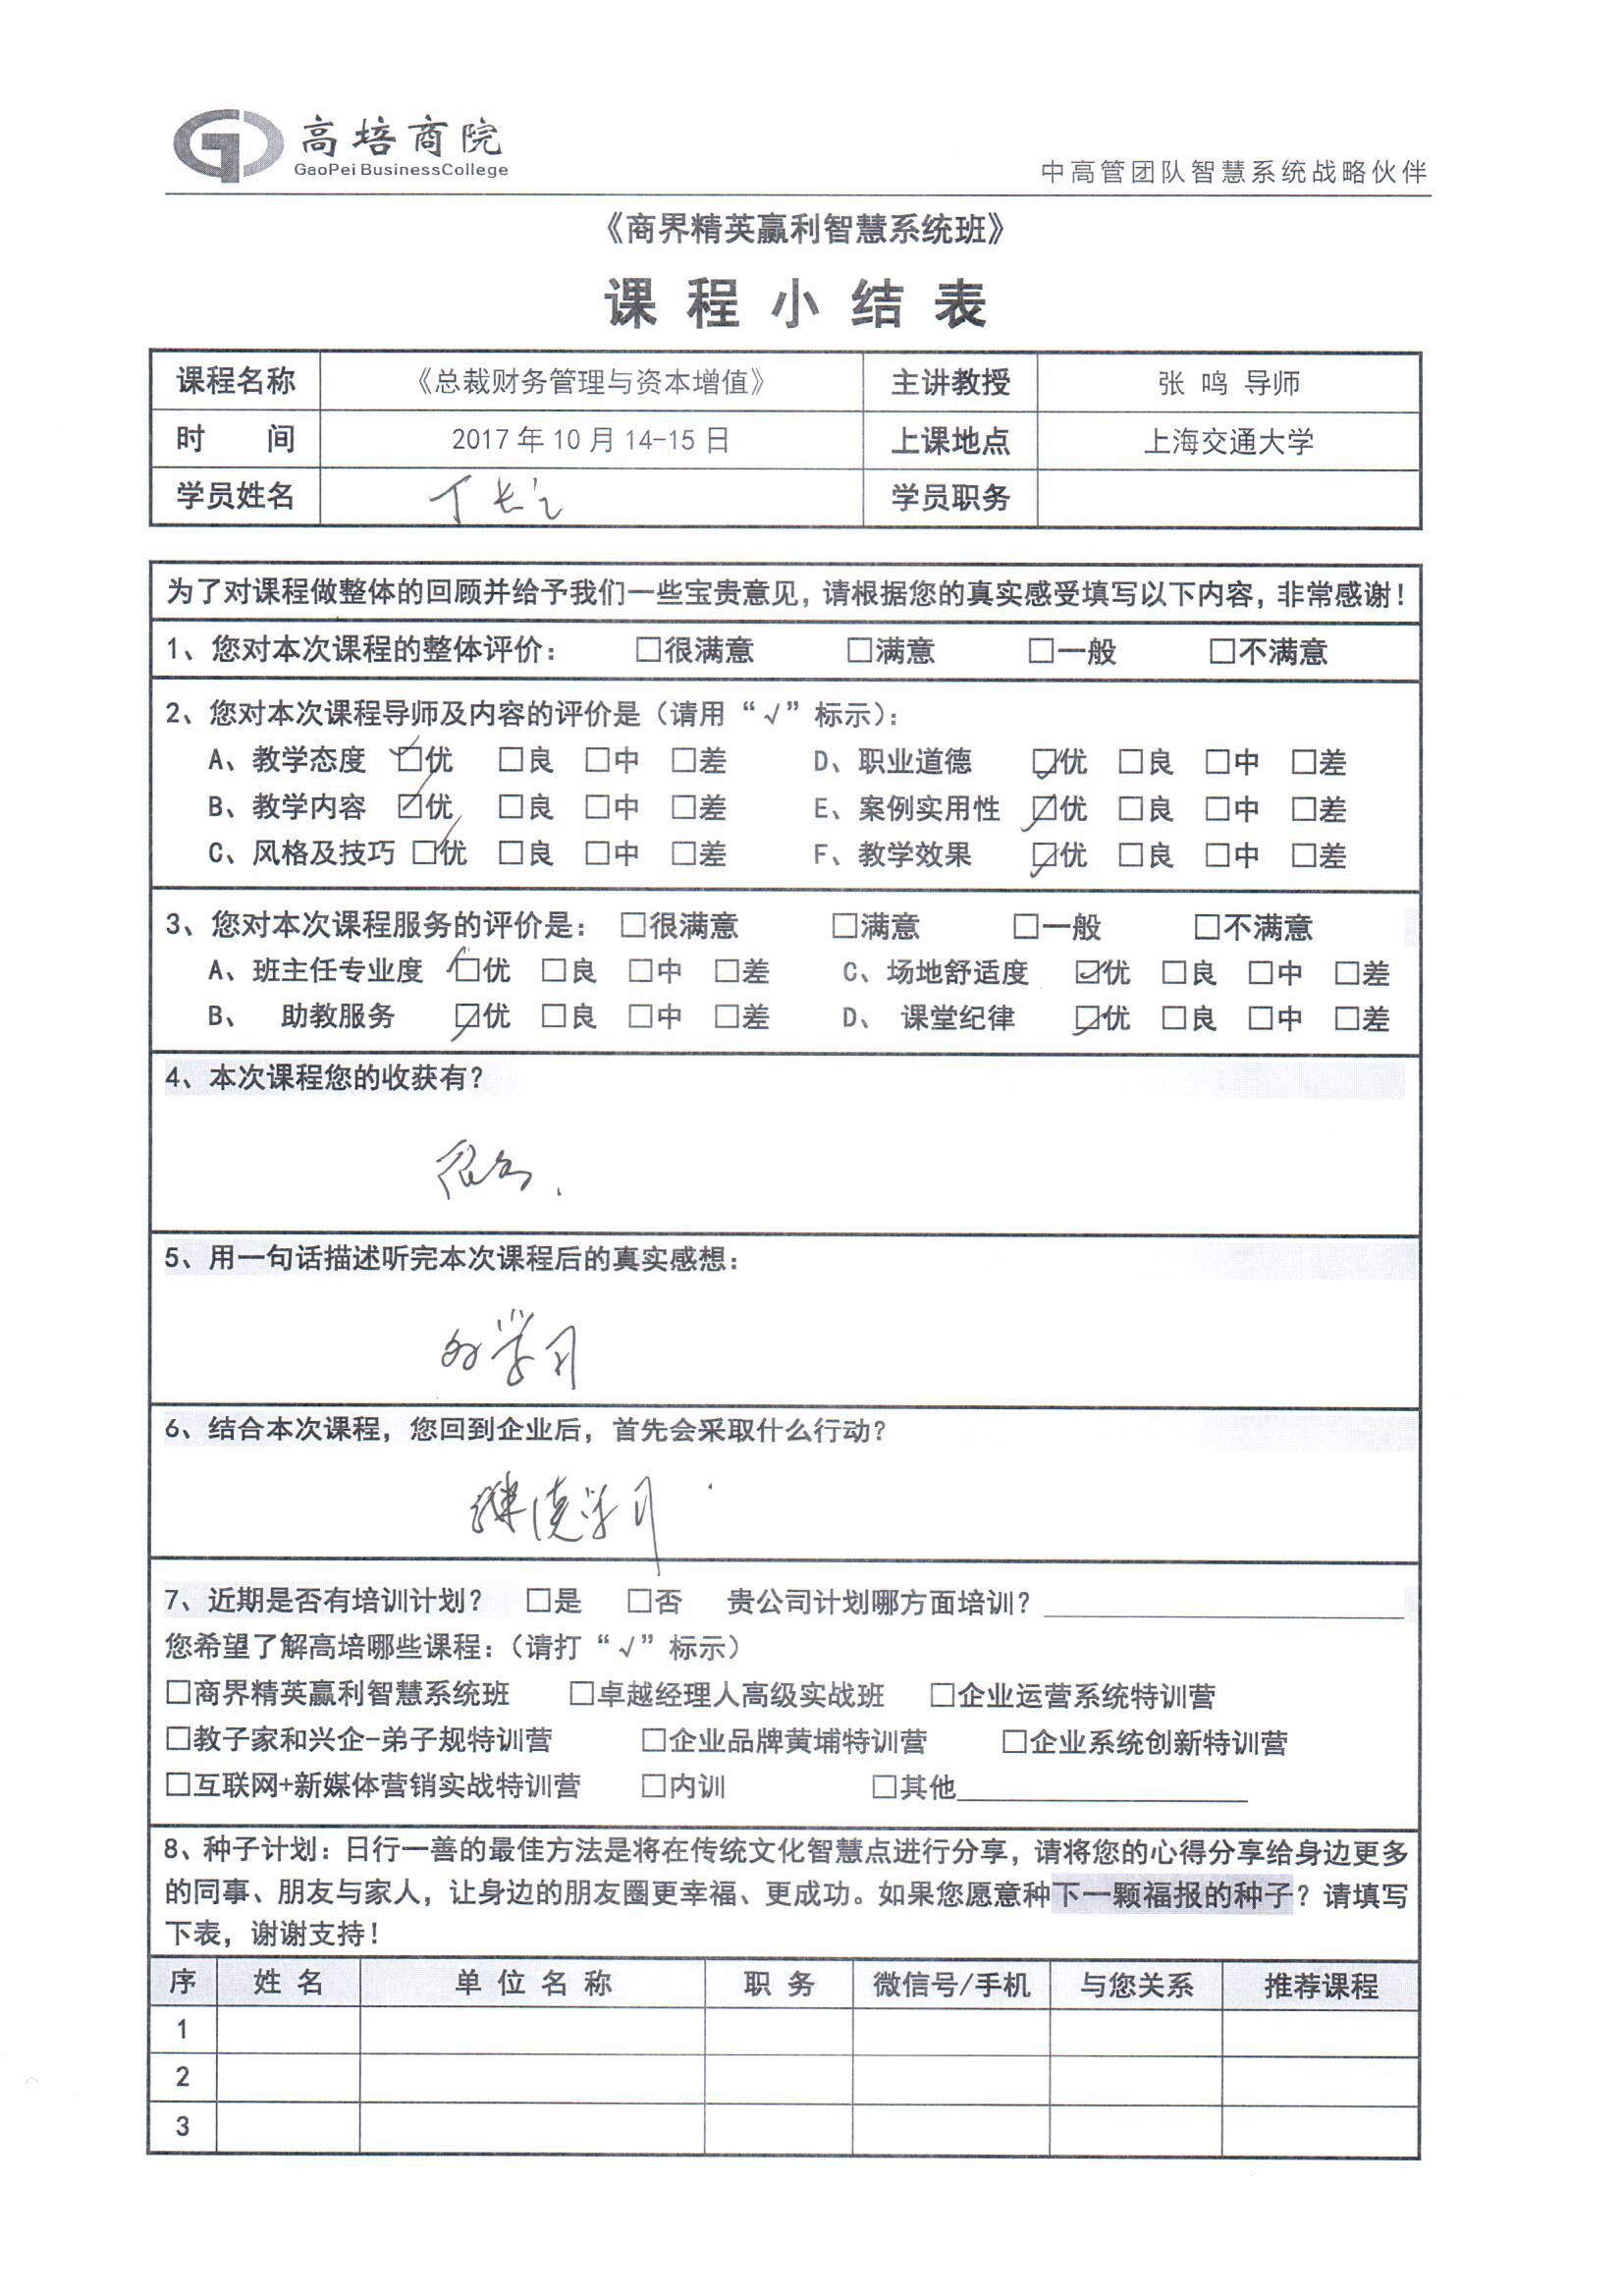 高培商院
GaoPei BusinessCollege
中高管团队智慧系统战略伙伴
《商界精英赢利智慧系统班》
课程小结表
课程名称 《总裁财务管理与资本增值》 主讲教授 张 鸣 导师
时 间 2017年10月14-15日 上课地点 上海交通大学
学员姓名 学员职务
为了对课程做整体的回顾并给予我们一些宝贵意见，请根据您的真实感受填写以下内容，非常感谢！
1、您对本次课程的整体评价： □很满意 □满意 □一般 □不满意
2、您对本次课程导师及内容的评价是（请用“√”标示）：
A、教学态度 ☑优 □良 □中 □差 D、职业道德 ☑优 □良 □中 □差
B、教学内容 ☑优 □良 □中 □差 E、案例实用性 ☑优 □良 □中 □差
C、风格及技巧 ☑优 □良 □中 □差 F、教学效果 ☑优 □良 □中 □差
3、您对本次课程服务的评价是： □很满意 □满意 □一般 □不满意
A、班主任专业度 ☑优 □良 □中 □差 C、场地舒适度 ☑优 □良 □中 □差
B、 助教服务 ☑优 □良 □中 □差 D、 课堂纪律 ☑优 □良 □中 □差
4、本次课程您的收获有？
很多.
5、用一句话描述听完本次课程后的真实感想：
学习
6、结合本次课程，您回到企业后，首先会采取什么行动？
继续学习.
7、近期是否有培训计划？ □是 □否 贵公司计划哪方面培训？
您希望了解高培哪些课程：（请打“√”标示）
□商界精英赢利智慧系统班 □卓越经理人高级实战班 □企业运营系统特训营
□教子家和兴企-弟子规特训营 □企业品牌黄埔特训营 □企业系统创新特训营
□互联网+新媒体营销实战特训营 □内训 □其他
8、种子计划：日行一善的最佳方法是将在传统文化智慧点进行分享，请将您的心得分享给身边更多
的同事、朋友与家人，让身边的朋友圈更幸福、更成功。如果您愿意种下一颗福报的种子？请填写
下表，谢谢支持！
序 姓名 单位名称 职务 微信号/手机 与您关系 推荐课程
1
2
3